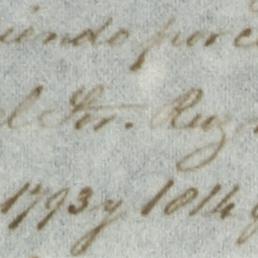 iendo por c
l Sor. Ruz
1793 y 1814 q